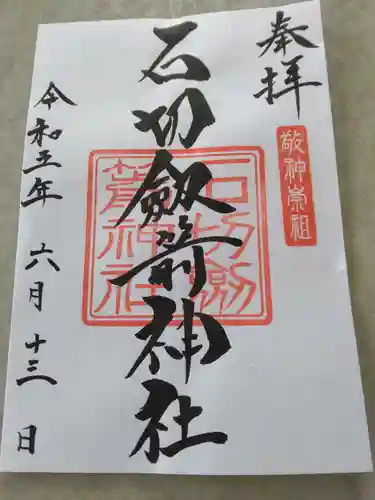 奉拝
敬神崇祖
石切劔箭神社
石切劔箭神社
令和五年 六月 十三日